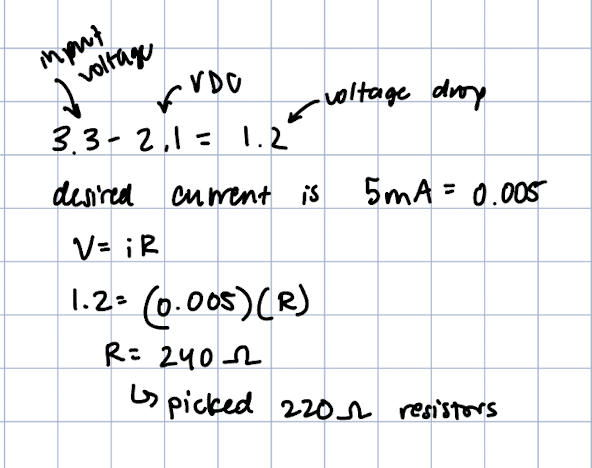 input voltage
VDC
voltage drop
3.3 - 2.1 = 1.2
desired current is 5mA = 0.005
V = iR
1.2 = (0.005)(R)
R = 240 Ω
↳ picked 220 Ω resistors